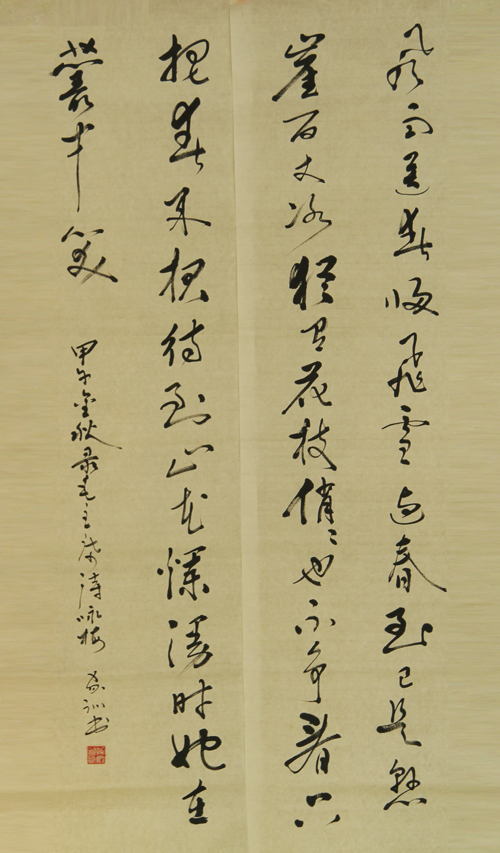 風雨送春归飛雪迎春到已是懸
崖百丈冰猶有花枝俏〻也不争春只
把春来报待到山花烂漫时她在
叢中笑
甲午金秋录毛主席诗咏梅 训书